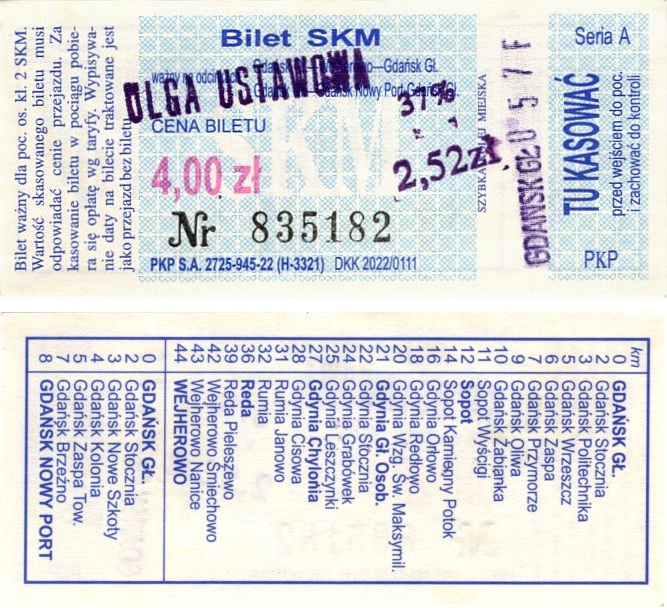 Bilet ważny dla poc. os. kl. 2 SKM.
Wartość skasowanego biletu musi
odpowiadać cenie przejazdu. Za
kasowanie biletu w pociągu pobie-
ra się opłatę wg taryfy. Wypisywa-
nie daty na bilecie traktowane jest
jako przejazd bez biletu
Bilet SKM
ważny na odcinku: Gdańsk Gł.
Gdańsk Nowy Port-Gdańsk Gł.
OLGA USTAWOWA
37%
CENA BILETU
SKM
4,00 zł
2,52zł
Nr 835182
PKP S.A. 2725-945-22 (H-3321) DKK 2022/0111
SZYBKA KOLEJ MIEJSKA
GDAŃSK GŁ. 057F
Seria A
TU KASOWAĆ
przed wejściem do poc.
i zachować do kontroli
PKP
km
0 GDAŃSK GŁ.
2 Gdańsk Stocznia
3 Gdańsk Politechnika
5 Gdańsk Wrzeszcz
6 Gdańsk Zaspa
7 Gdańsk Przymorze
9 Gdańsk Oliwa
10 Gdańsk Żabianka
11 Sopot Wyścigi
12 Sopot
14 Sopot Kamienny Potok
16 Gdynia Orłowo
18 Gdynia Redłowo
20 Gdynia Wzg. Św. Maksymil.
21 Gdynia Gł. Osob.
22 Gdynia Stocznia
24 Gdynia Grabówek
25 Gdynia Leszczynki
27 Gdynia Chylonia
28 Gdynia Cisowa
31 Rumia Janowo
32 Rumia
36 Reda
39 Reda Pieleszewo
42 Wejherowo Śmiechowo
43 Wejherowo Nanice
44 WEJHEROWO
0 GDAŃSK GŁ.
2 Gdańsk Stocznia
3 Gdańsk Nowe Szkoty
4 Gdańsk Kolonia
5 Gdańsk Zaspa Tow.
7 Gdańsk Brzeźno
8 GDAŃSK NOWY PORT